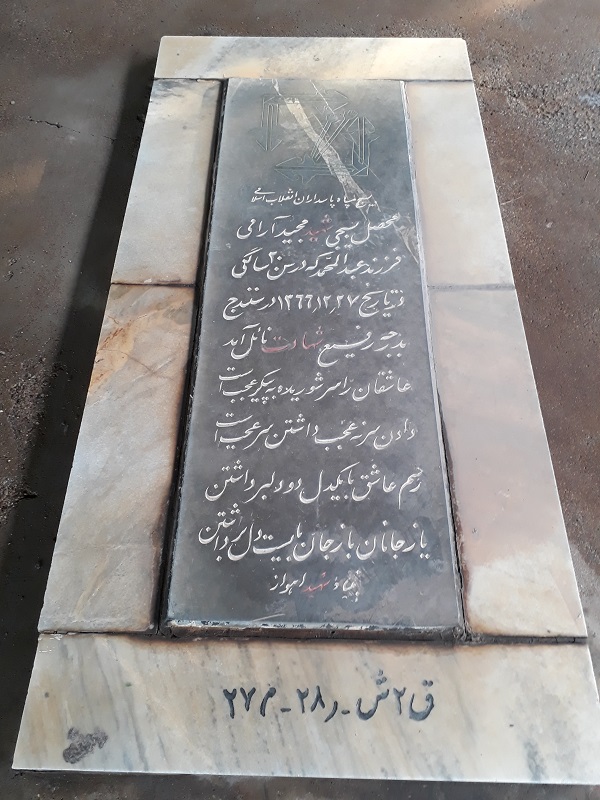 بسیج سپاه پاسداران انقلاب اسلامی
محصل بسیجی شهید مجید آرامی
فرزند عبدالمحمد که در سن ۲۰ سالگی
در تاریخ ۱۳۶۶٫۱۲٫۲۷ در سنندج
بدرجه رفیع شهادت نائل آمد
عاشقان را سر شوریده به پیکر عجب است
دادن سر نه عجب داشتن سر عجب است
رسم عاشق با یکدل دو دلبر داشتن
یا ز جانان یا ز جان بایست دل برداشتن
بنیاد شهید اهواز
ق ۲ ش - ر ۲۸ - م ۲۷